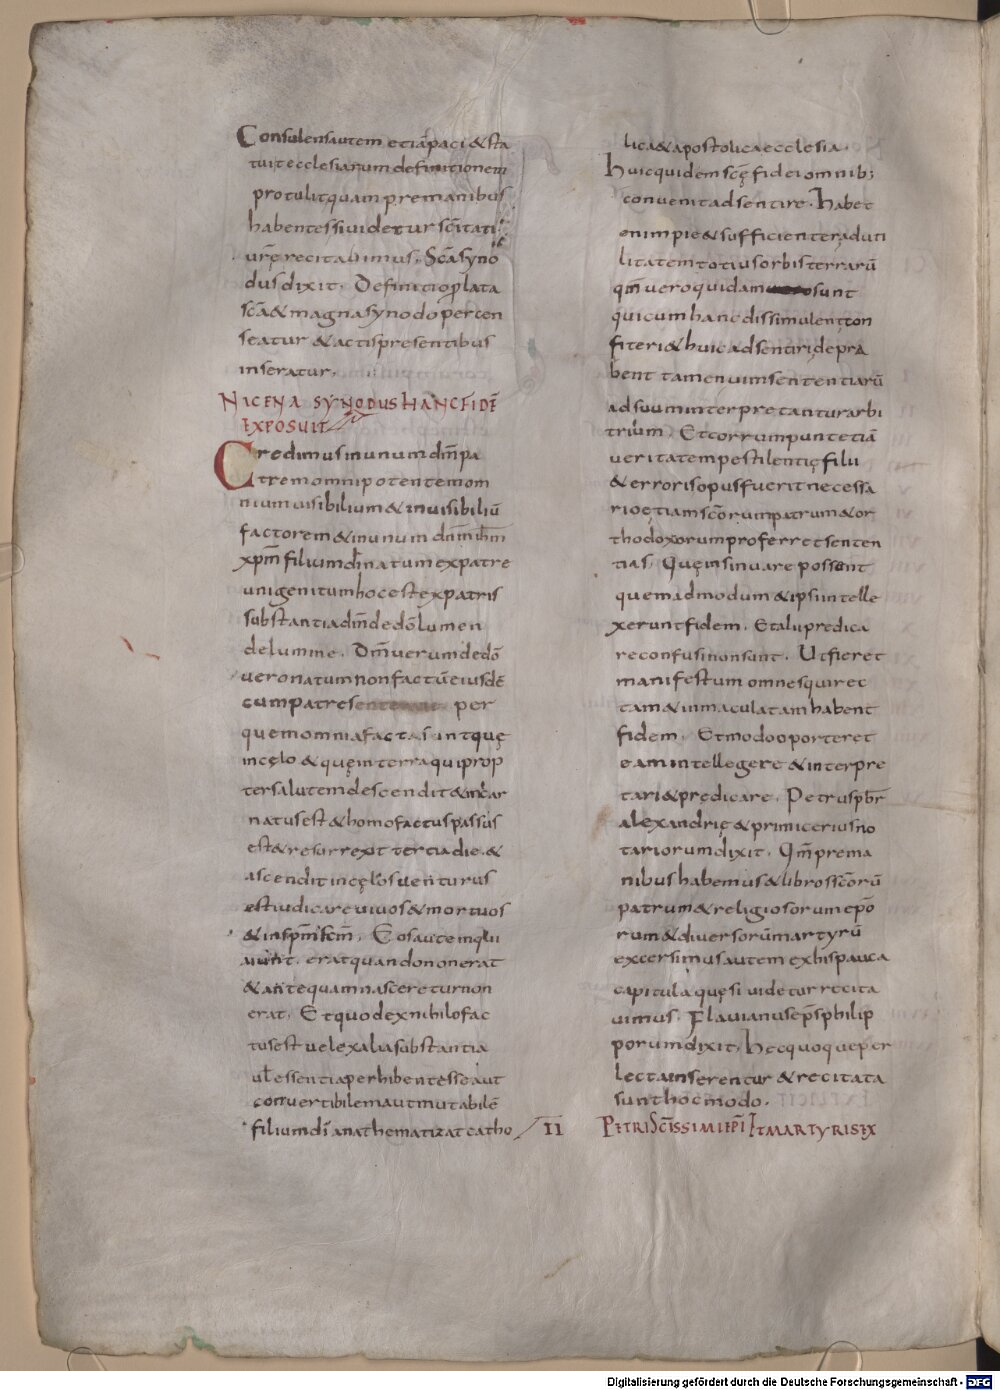 Consulens autem etiā paci & sta
tuit ecclesiarum definitionem
protulit quam pre manibus
habentes si videtur sc̄itati
ur̄ę recitabimus. Sc̄a syno
dus dixit. Definitio plata
sc̄a & magna synodo percen
seatur & actis presentibus
inseratur.
NICENA SYNODUS HANC FIDĒ
EXPOSUIT
Credimus in unum dm̄ pa
trem omnipotentem om
nium visibilium & invisibiliū
factorem & in unum dn̄m ih̄m
xp̄m filium dī natum ex patre
unigenitum hoc est ex patris
substantia dm̄ de dō lumen
de lumine. Dm̄ verum de dō
vero natum non factū eiusdē
cum patre per
quem omnia facta sunt quę
in cęlo & quę in terra qui prop
ter salutem descendit & incar
natus est & homo factus passus
est & resurrexit tertia die &
ascendit in cęlos venturus
est iudicare vivos & mortuos
& in sp̄m sc̄m. Eos autem qui
aiunt. erat quando non erat
& antequam nasceretur non
erat. Et quod ex nihilo fac
tus est vel ex alia substantia
ul̄ essentia perhibentes se aut
convertibilem aut mutabilē
filium dī anathematizat catho
lica & apostolica ecclesia.
Huic quidem sc̄ę fidei omnib;
convenit adsentire. Habet
enim pie & sufficienter ad uti
litatem totius orbis terrarū
qm̄ vero quidam sunt
qui cum hanc dissimulent con
fiteri & huic adsentiri depra
bent tamen vim sententiarū
ad suum interpretantur arbi
trium. Et corrumpunt etiā
veritatem pestilentię filii
& erroris opus fuerit necessa
rio ętiam sc̄orum patrum & or
thodoxorum proferre senten
tias. Quę insinuare possent
quemadmodum & ipsi intelle
xerunt fidem. Et alii predica
re confusi non sunt. Ut fieret
manifestum omnes qui rec
tam & inmaculatam habent
fidem. Et modo oporteret
eam intellegere & interpre
tari & prędicare. Petrus pb̄r
alexandrię & primicerius no
tariorum dixit. Qm̄ pre ma
nibus habemus & libros sc̄orū
patrum & religiosorum epō
rum & diversorū martyrū
excersimus autem ex his pauca
capitula quę si videtur recita
vimus. Flavianus ep̄s philip
porum dixit. Hec quoque per
lecta inserentur & recitata
sunt hoc modo.
II PETRI SC̄ISSIMI EPĪ ET MARTYRIS EX
Digitalisierung gefördert durch die Deutsche Forschungsgemeinschaft - DFG